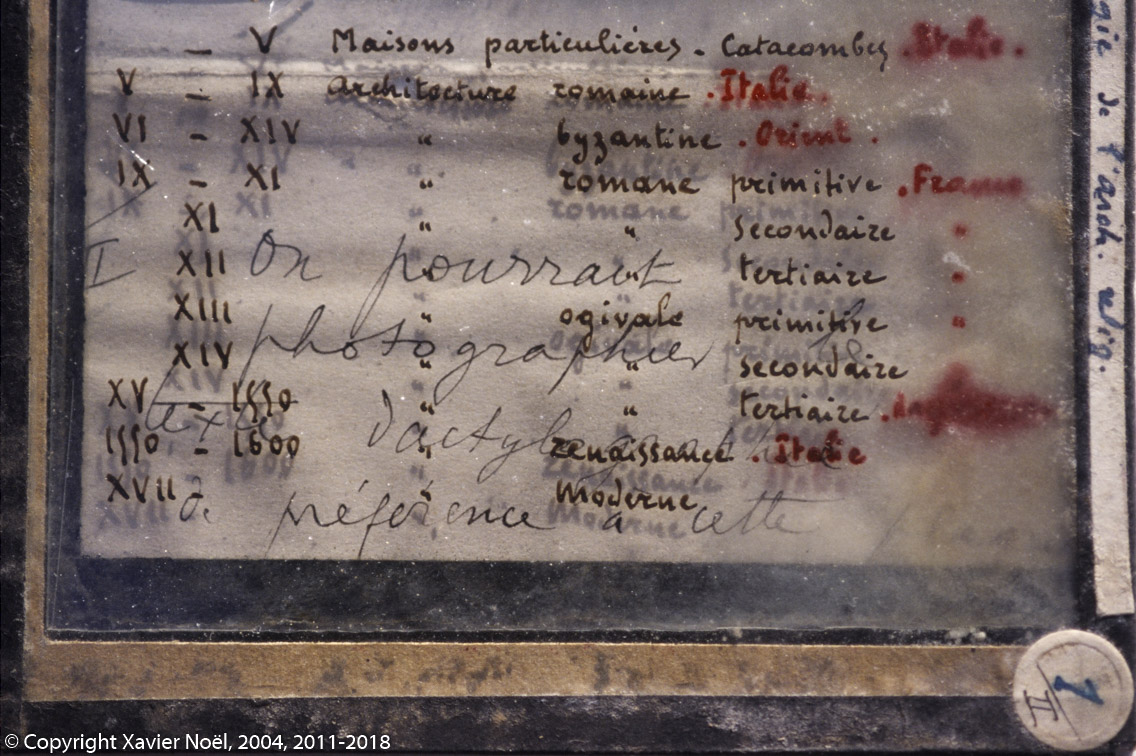 – V Maisons particulières . Catacombes . Italie .
V – IX Architecture romaine . Italie .
VI – XIV " byzantine . Orient .
IX – XI " romane primitive . France
XI " " secondaire "
XII " " tertiaire "
XIII " ogivale primitive "
XIV " " secondaire
XV – 1550 " " tertiaire .
1550 – 1600 " renaissance . Italie
XVII – " Moderne
I On pourrait
photographier
texte dactylographié
de préférence à cette
de l'arch. relig.
1
II
© Copyright Xavier Noël, 2004, 2011-2018